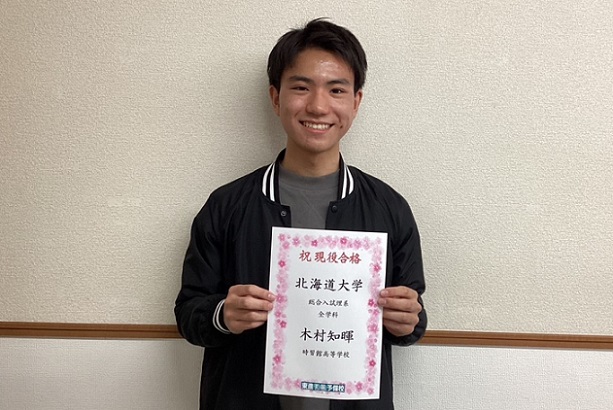 祝 現役合格
北海道大学
総合入試理系
全学科
木村知暉
時習館高等学校
東進衛星予備校